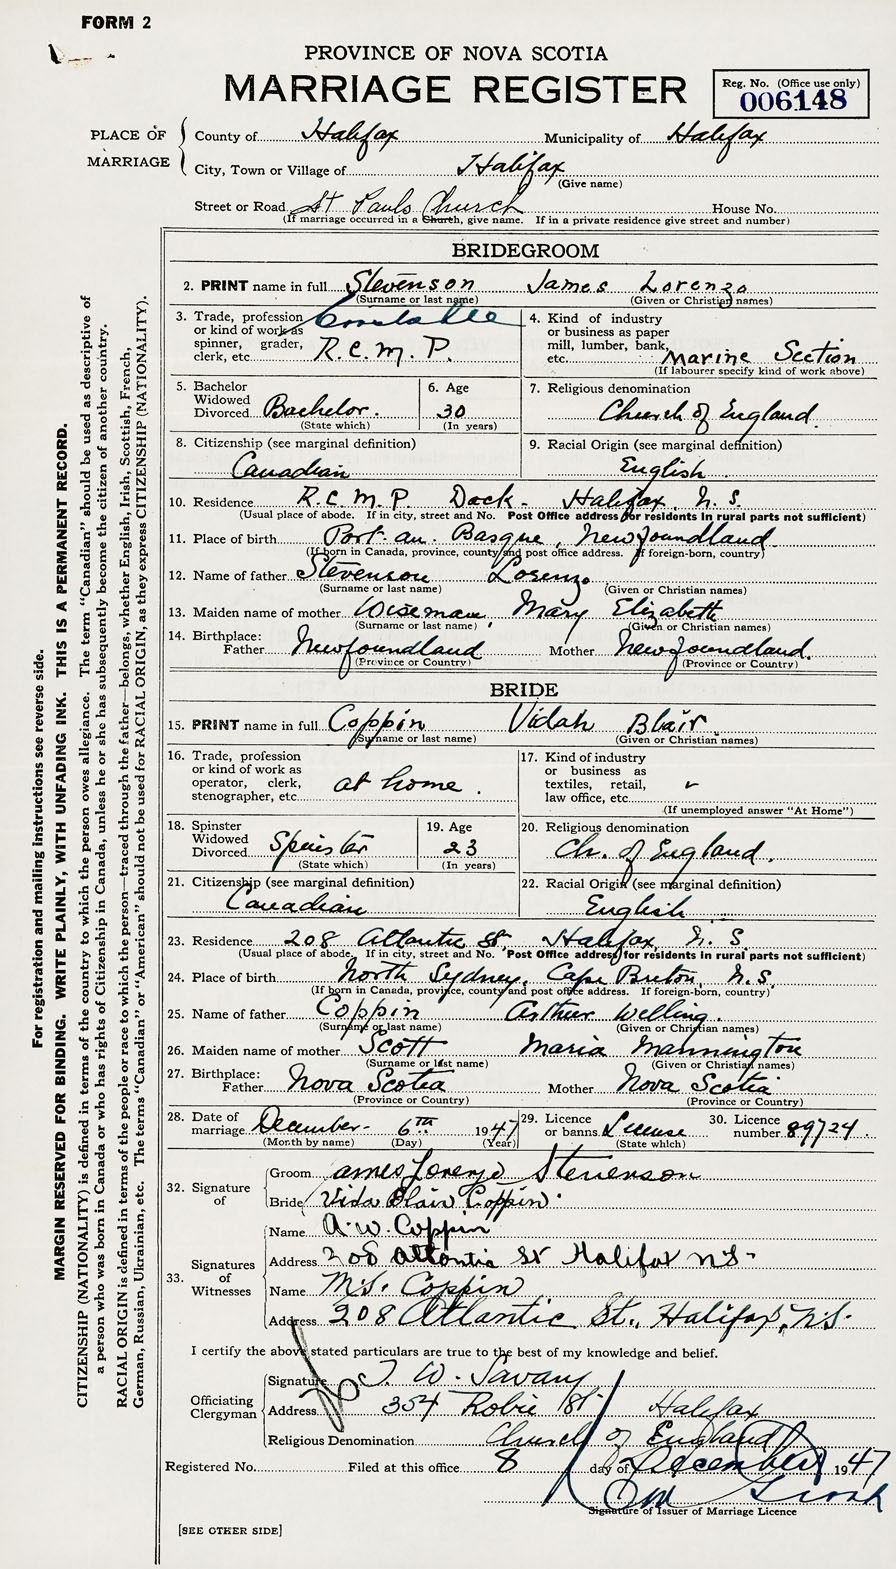 FORM 2
PROVINCE OF NOVA SCOTIA
MARRIAGE REGISTER
Reg. No. (Office use only)
006148
PLACE OF MARRIAGE
County of Halifax Municipality of Halifax
City, Town or Village of Halifax
(Give name)
Street or Road St Pauls Church House No.
(If marriage occurred in a Church, give name. If in a private residence give street and number)
BRIDEGROOM
2. PRINT name in full Stevenson James Lorenzo
(Surname or last name) (Given or Christian names)
3. Trade, profession or kind of work as spinner, grader, clerk, etc. Constable R.C.M.P.
4. Kind of industry or business as paper mill, lumber, bank, etc. Marine Section
(If labourer specify kind of work above)
5. Bachelor Widowed Divorced Bachelor.
(State which)
6. Age 30
(In years)
7. Religious denomination Church of England.
8. Citizenship (see marginal definition) Canadian
9. Racial Origin (see marginal definition) English
10. Residence R.C.M.P. Dock - Halifax, N.S.
(Usual place of abode. If in city, street and No. Post Office address for residents in rural parts not sufficient)
11. Place of birth Port-au-Basque, Newfoundland
(If born in Canada, province, county and post office address. If foreign-born, country)
12. Name of father Stevenson Lorenzo
(Surname or last name) (Given or Christian names)
13. Maiden name of mother Wiseman, Mary Elizabeth
(Surname or last name) (Given or Christian names)
14. Birthplace: Father Newfoundland Mother Newfoundland.
(Province or Country) (Province or Country)
BRIDE
15. PRINT name in full Coppin Vidah Blair
(Surname or last name) (Given or Christian names)
16. Trade, profession or kind of work as operator, clerk, stenographer, etc. at home.
17. Kind of industry or business as textiles, retail, law office, etc.
(If unemployed answer "At Home")
18. Spinster Widowed Divorced Spinster
(State which)
19. Age 23
(In years)
20. Religious denomination Ch. of England.
21. Citizenship (see marginal definition) Canadian
22. Racial Origin (see marginal definition) English
23. Residence 208 Atlantic St. Halifax, N.S.
(Usual place of abode. If in city, street and No. Post Office address for residents in rural parts not sufficient)
24. Place of birth North Sydney, Cape Breton, N.S.
(If born in Canada, province, county and post office address. If foreign-born, country)
25. Name of father Coppin Arthur Welling.
(Surname or last name) (Given or Christian names)
26. Maiden name of mother Scott Maria Mannington
(Surname or last name) (Given or Christian names)
27. Birthplace: Father Nova Scotia Mother Nova Scotia
(Province or Country) (Province or Country)
28. Date of marriage December 6th 1947
(Month by name) (Day) (Year)
29. Licence or banns License
(State which)
30. Licence number 89724.
32. Signature of
Groom James Lorenzo Stevenson
Bride Vida Blair Coppin
33. Signatures of Witnesses
Name A.W. Coppin
Address 208 Atlantic St Halifax NS-
Name M.S. Coppin
Address 208 Atlantic St., Halifax, N.S.
I certify the above stated particulars are true to the best of my knowledge and belief.
Officiating Clergyman
Signature T. W. Savary
Address 354 Robie St Halifax
Religious Denomination Church of England
Registered No. Filed at this office 8 day of December 1947
Signature of Issuer of Marriage Licence
[SEE OTHER SIDE]
For registration and mailing instructions see reverse side.
MARGIN RESERVED FOR BINDING. WRITE PLAINLY, WITH UNFADING INK. THIS IS A PERMANENT RECORD.
CITIZENSHIP (NATIONALITY) is defined in terms of the country to which the person owes allegiance. The term "Canadian" should be used as descriptive of
a person who was born in Canada or who has rights of Citizenship in Canada, unless he or she has subsequently become the citizen of another country.
RACIAL ORIGIN is defined in terms of the people or race to which the person—traced through the father—belongs, whether English, Irish, Scottish, French,
German, Russian, Ukrainian, etc. The terms "Canadian" or "American" should not be used for RACIAL ORIGIN, as they express CITIZENSHIP (NATIONALITY).